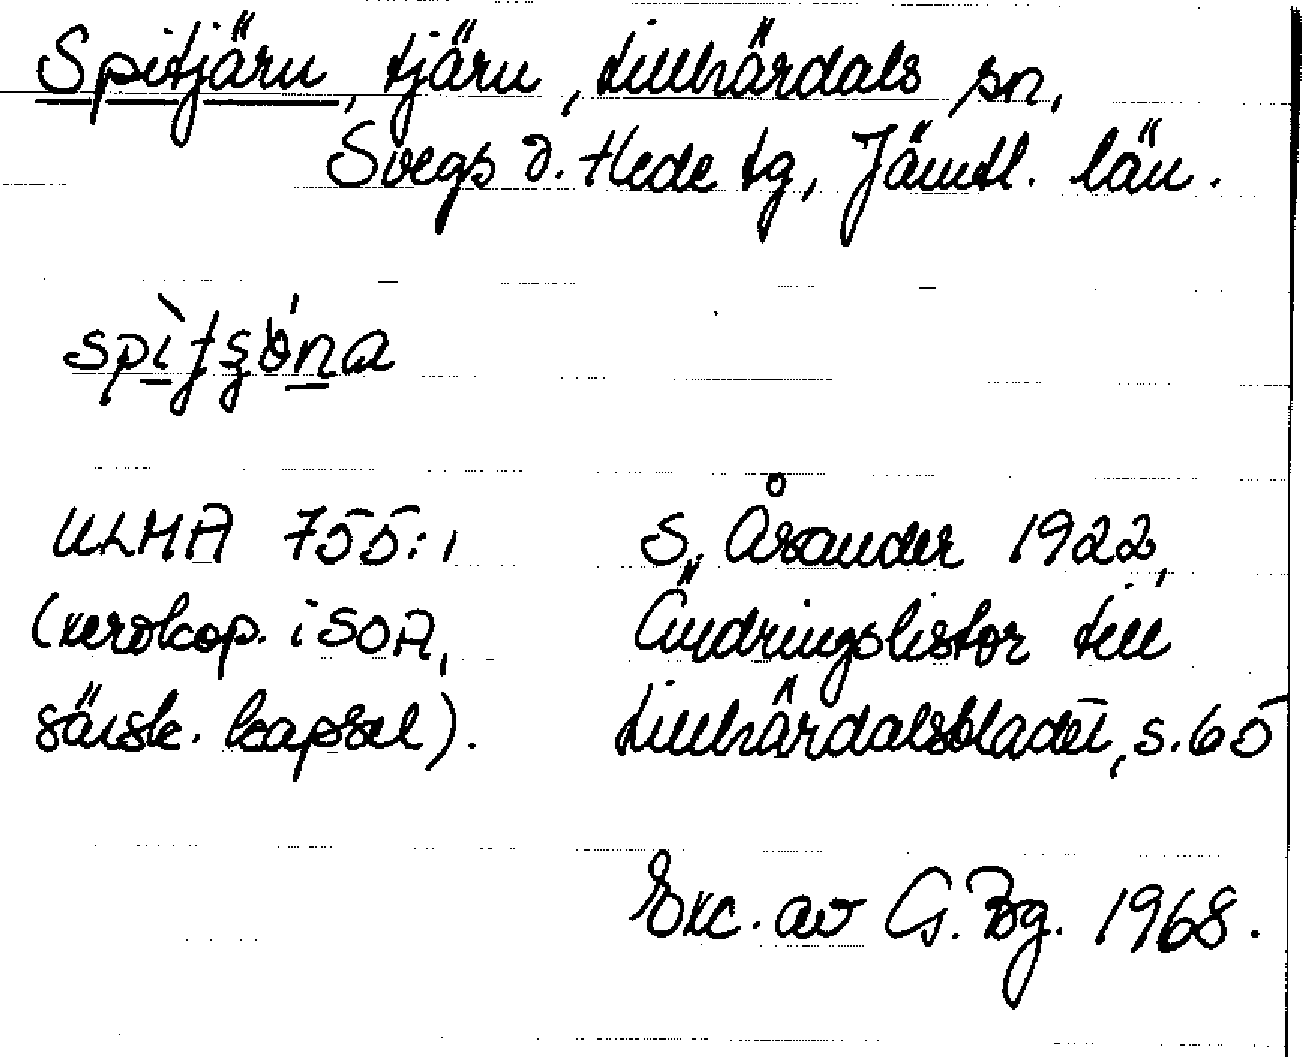 Spitjärn, tjärn, Lillhärdals sn,
Svegs d. Hede tg, Jämtl. län.
ULMA 755:1
(xerokop. i SOA,
särsk. kapsel).
S. Åsander 1922,
Ändringslistor till
Lillhärdalsbladet, s. 65
Exc. av G. Bg. 1968.